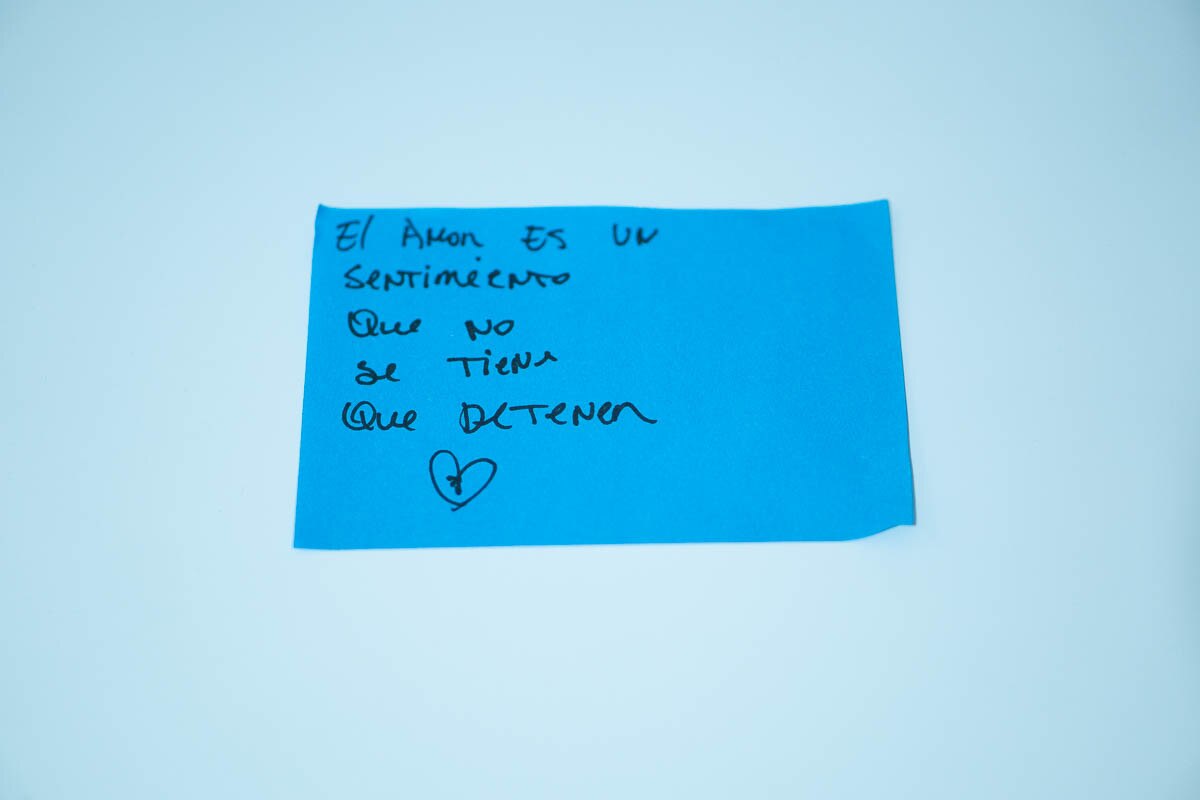 El Amor ES UN
Sentimiento
Que NO
se Tiene
Que Detener